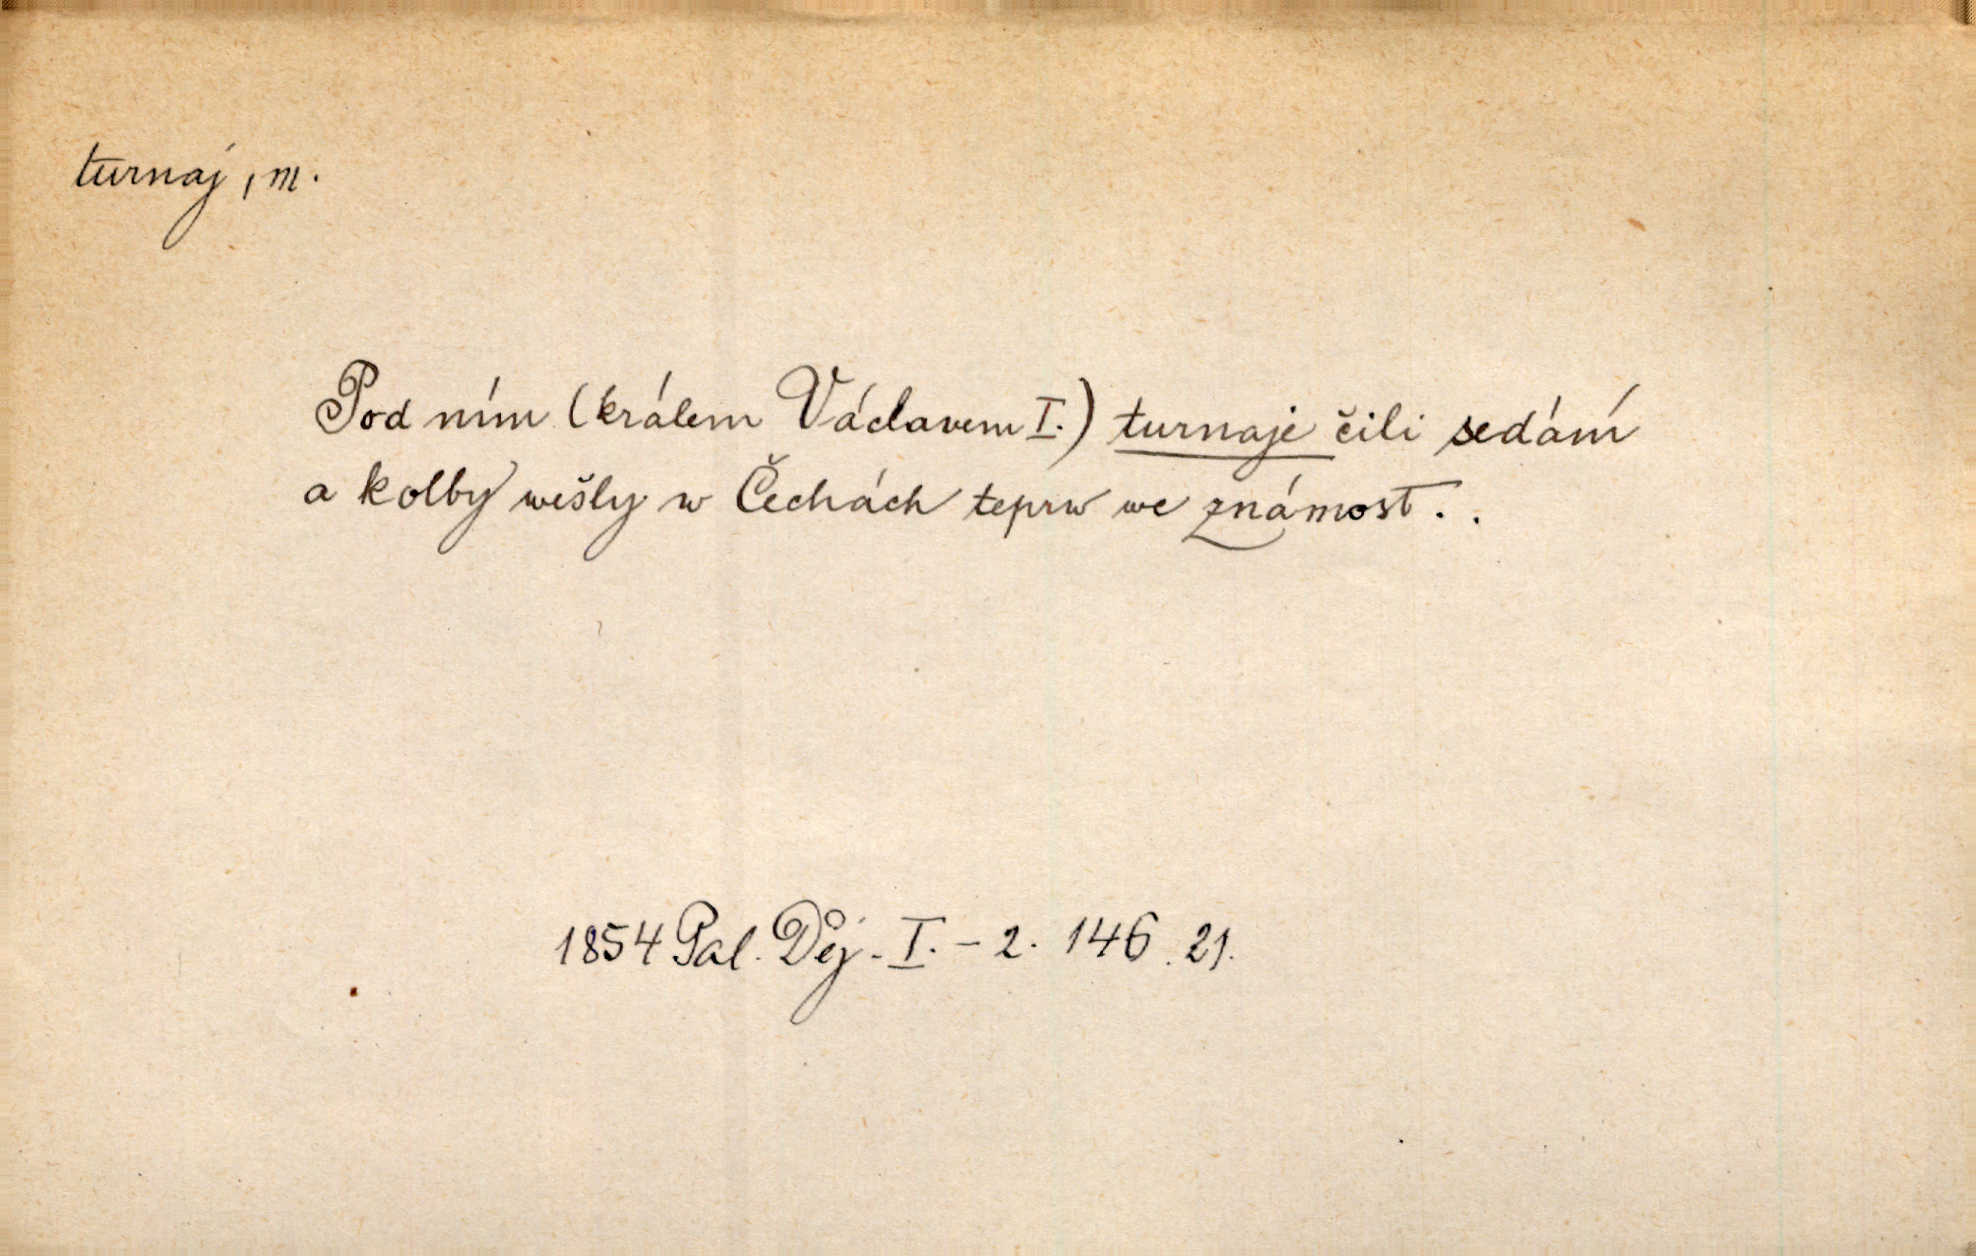 turnaj, m.
Pod ním (králem Václavem I.) turnaje čili sedání
a kolby wešly w Čechách teprw we známost . .
1854 Pal. Děj. I. - 2. 146. 21.